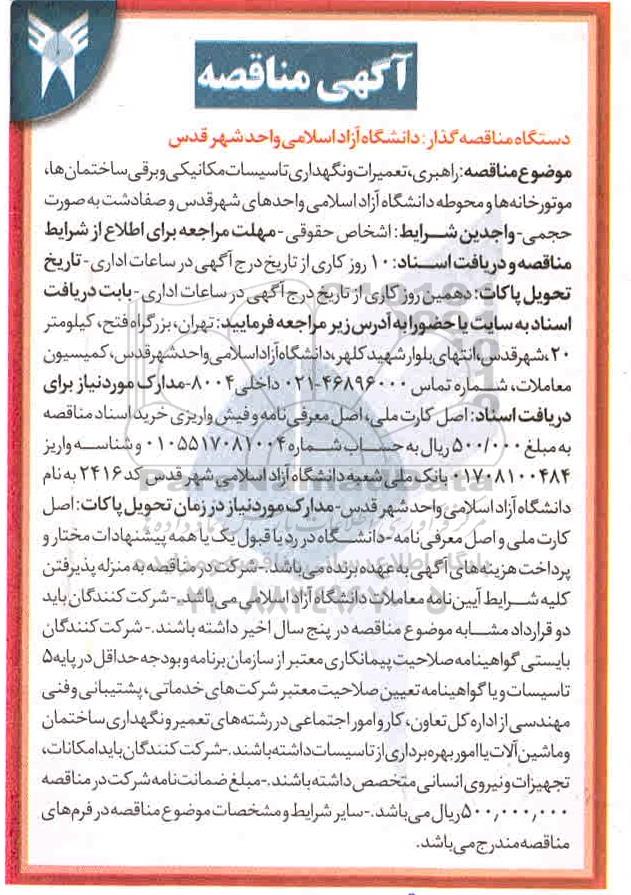 آگهی مناقصه
دستگاه مناقصه گذار: دانشگاه آزاد اسلامی واحد شهر قدس
موضوع مناقصه: راهبری، تعمیرات و نگهداری تاسیسات مکانیکی و برقی ساختمان ها،
موتورخانه ها و محوطه دانشگاه آزاد اسلامی واحدهای شهرقدس و صفادشت به صورت
حجمی- واجدین شرایط: اشخاص حقوقی- مهلت مراجعه برای اطلاع از شرایط
مناقصه و دریافت اسناد: ۱۰ روز کاری از تاریخ درج آگهی در ساعات اداری- تاریخ
تحویل پاکات: دهمین روز کاری از تاریخ درج آگهی در ساعات اداری- بابت دریافت
اسناد به سایت یا حضورا به آدرس زیر مراجعه فرمایید: تهران، بزرگراه فتح، کیلومتر
۲۰، شهرقدس، انتهای بلوار شهید کلهر، دانشگاه آزاد اسلامی واحد شهرقدس، کمیسیون
معاملات، شماره تماس ۴۶۸۹۶۰۰۰-۰۲۱ داخلی ۸۰۰۴- مدارک موردنیاز برای
دریافت اسناد: اصل کارت ملی، اصل معرفی نامه و فیش واریزی خرید اسناد مناقصه
به مبلغ ۵۰۰/۰۰۰ ریال به حساب شماره ۰۱۰۵۵۱۷۰۸۱۰۰۴ و شناسه واریز
۰۱۷۰۸۱۰۰۴۸۴ بانک ملی شعبه دانشگاه آزاد اسلامی شهر قدس کد ۲۴۱۶ به نام
دانشگاه آزاد اسلامی واحد شهر قدس- مدارک موردنیاز در زمان تحویل پاکات: اصل
کارت ملی و اصل معرفی نامه- دانشگاه در رد یا قبول یک یا همه پیشنهادات مختار و
پرداخت هزینه های آگهی به عهده برنده می باشد.- شرکت در مناقصه به منزله پذیرفتن
کلیه شرایط آیین نامه معاملات دانشگاه آزاد اسلامی می باشد.- شرکت کنندگان باید
دو قرارداد مشابه موضوع مناقصه در پنج سال اخیر داشته باشند.- شرکت کنندگان
بایستی گواهینامه صلاحیت پیمانکاری معتبر از سازمان برنامه و بودجه حداقل در پایه ۵
تاسیسات و یا گواهینامه تعیین صلاحیت معتبر شرکت های خدماتی، پشتیبانی و فنی
مهندسی از اداره کل تعاون، کار و امور اجتماعی در رشته های تعمیر و نگهداری ساختمان
و ماشین آلات یا امور بهره برداری از تاسیسات داشته باشند.- شرکت کنندگان باید امکانات،
تجهیزات و نیروی انسانی متخصص داشته باشند.- مبلغ ضمانت نامه شرکت در مناقصه
۵۰۰,۰۰۰,۰۰۰ ریال می باشد.- سایر شرایط و مشخصات موضوع مناقصه در فرم های
مناقصه مندرج می باشد.